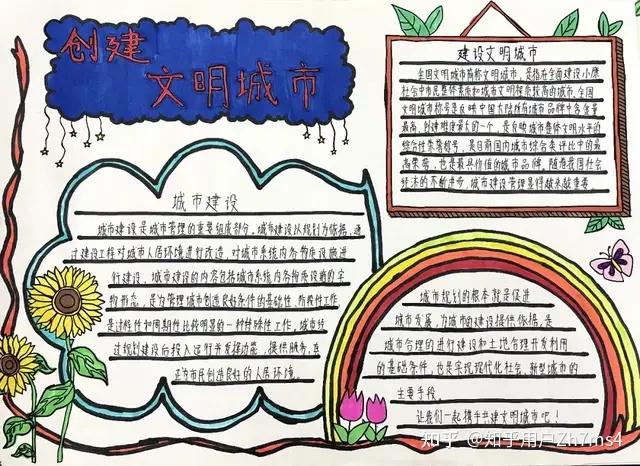 创建
文明城市
建设文明城市
全国文明城市简称文明城市，是指在全面建设小康
社会中市民整体素质和城市文明程度较高的城市。全国
文明城市称号是反映中国大陆所有城市品牌中含金量
最高、创建难度最大的一个，是反映城市整体文明水平的
综合性荣誉称号，是目前国内城市综合类评比中的最
高荣誉，也是最具价值的城市品牌。随着我国社会
经济的不断进步，城市建设管理显得越来越重要
城市建设
城市建设是城市管理的重要组成部分。城市建设以规划为依据，通
过建设工程对城市人居环境进行改造，对城市系统内各物质设施进
行建设，城市建设的内容包括城市系统内各物质设施的实
物形态，是为管理城市创造良好条件的基础性、阶段性工作，
是过程性和周期性比较明显的一种特殊性工作。城市经
过规划建设后投入运行并发挥功能，提供服务，真
正为市民创造良好的人居环境。
城市规划的根本就是促进
城市发展，为城市的建设提供依据，是
城市合理的进行建设和土地合理开发利用
的基础条件，也是实现现代化社会、新型城市的
主要手段。
让我们一起携手共建文明城市吧！
知乎 @知乎用户Zh7ms4